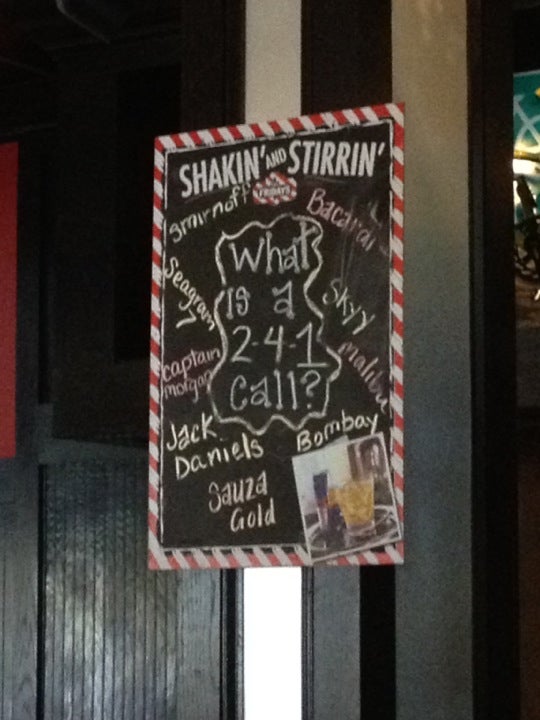 SHAKIN' AND STIRRIN'
FRIDAYS
Smirnoff
Bacardi
What
is a
2-4-1
call?
Seagram
7
Skyy
captain
morgan
malibu
Jack
Daniels
Bombay
Sauza
Gold